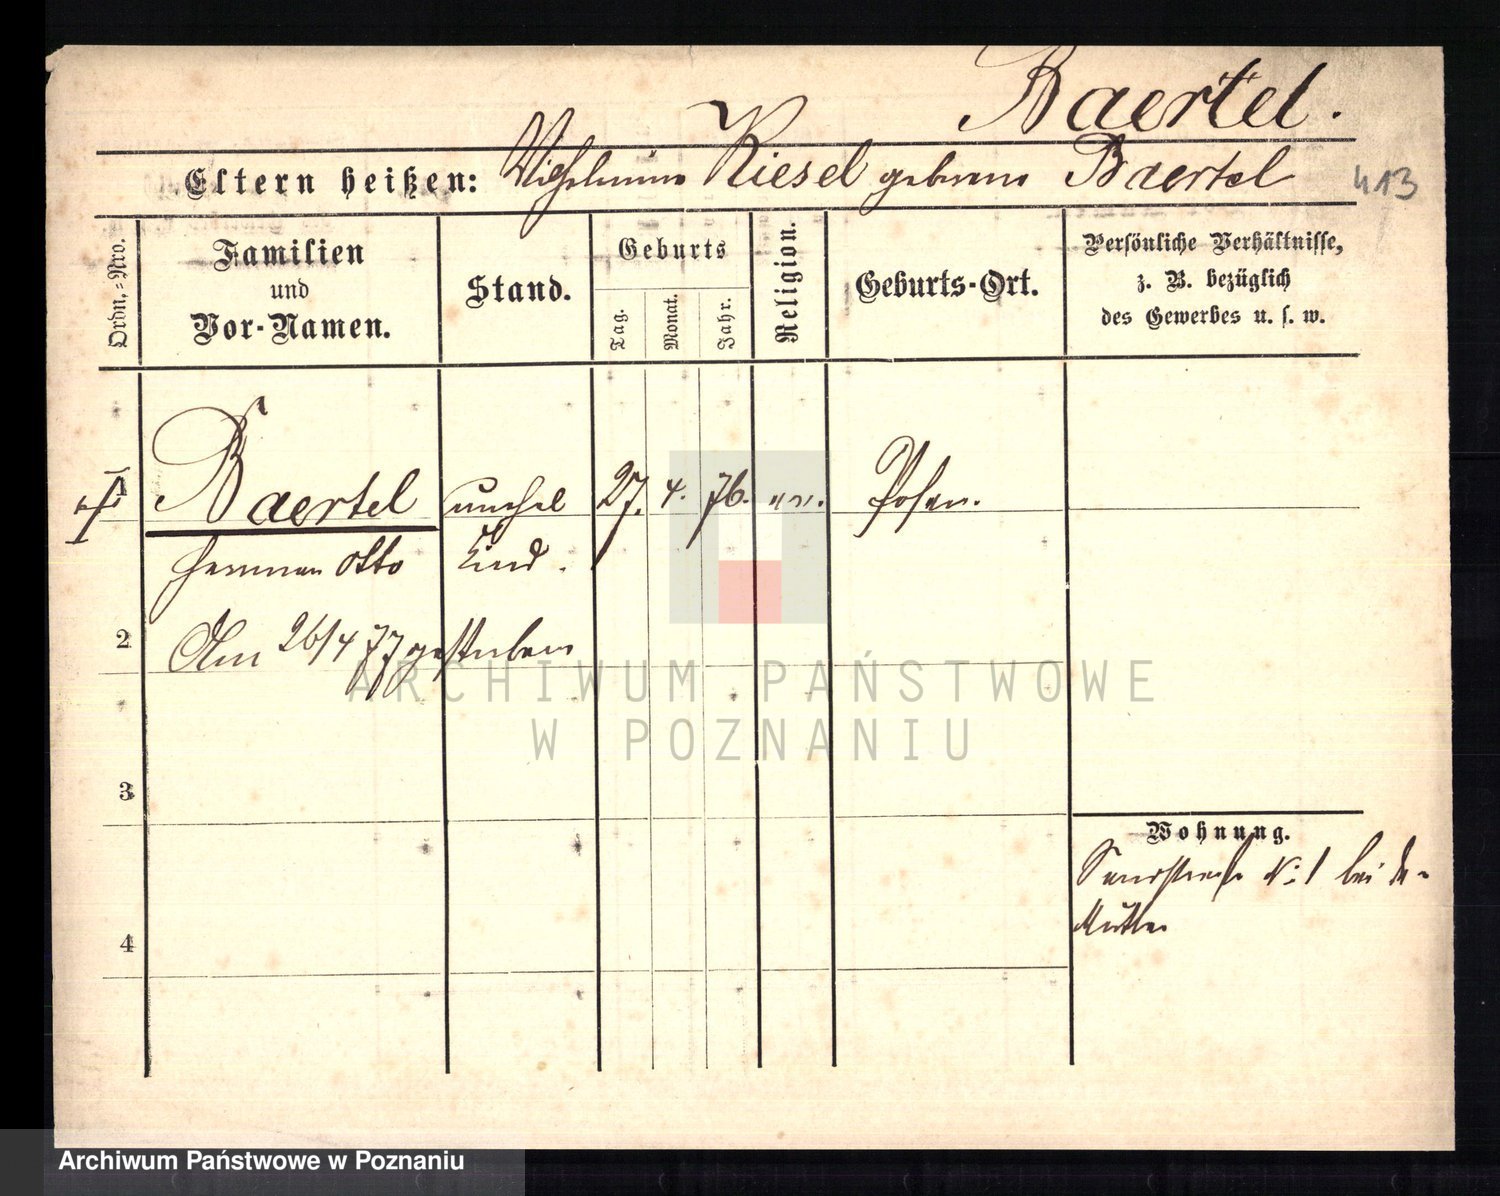 Baertel.
Eltern heißen: Wilhelmine Kiesel geborene Baertel
413
Ordn.=Nro.
Familien
und
Vor-Namen.
Stand.
Geburts
Tag.
Monat.
Jahr.
Religion.
Geburts-Ort.
Persönliche Verhältnisse,
z. B. bezüglich
des Gewerbes u. s. w.
1
Baertel unehel 27. 4. 76. ev. Posen.
Herman Otto Kind.
2
Am 26/4 77 gestorben
3
4
Wohnung.
Sandstraße No 1 bei der
Mutter
ARCHIWUM PAŃSTWOWE
W POZNANIU
Archiwum Państwowe w Poznaniu